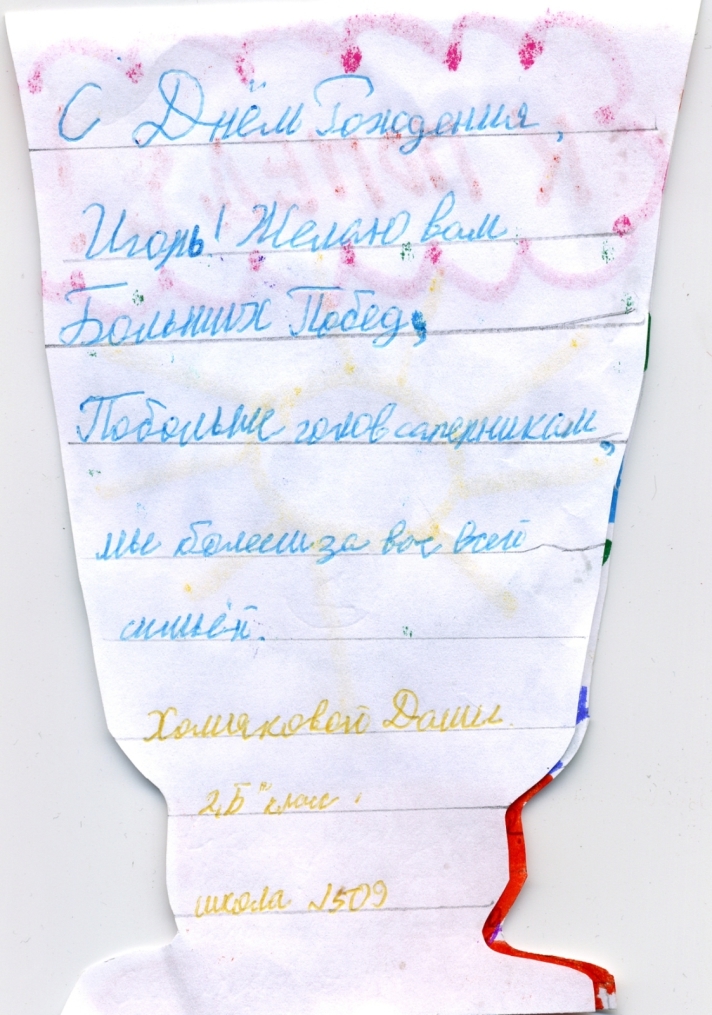 С Днём Рождения,
Игорь! Желаю вам
Больших Побед,
Побольше голов саперникам,
мы болеем за вас всей
симьёй.
Хомяковой Даши
2„Б" клас.
школа 1509